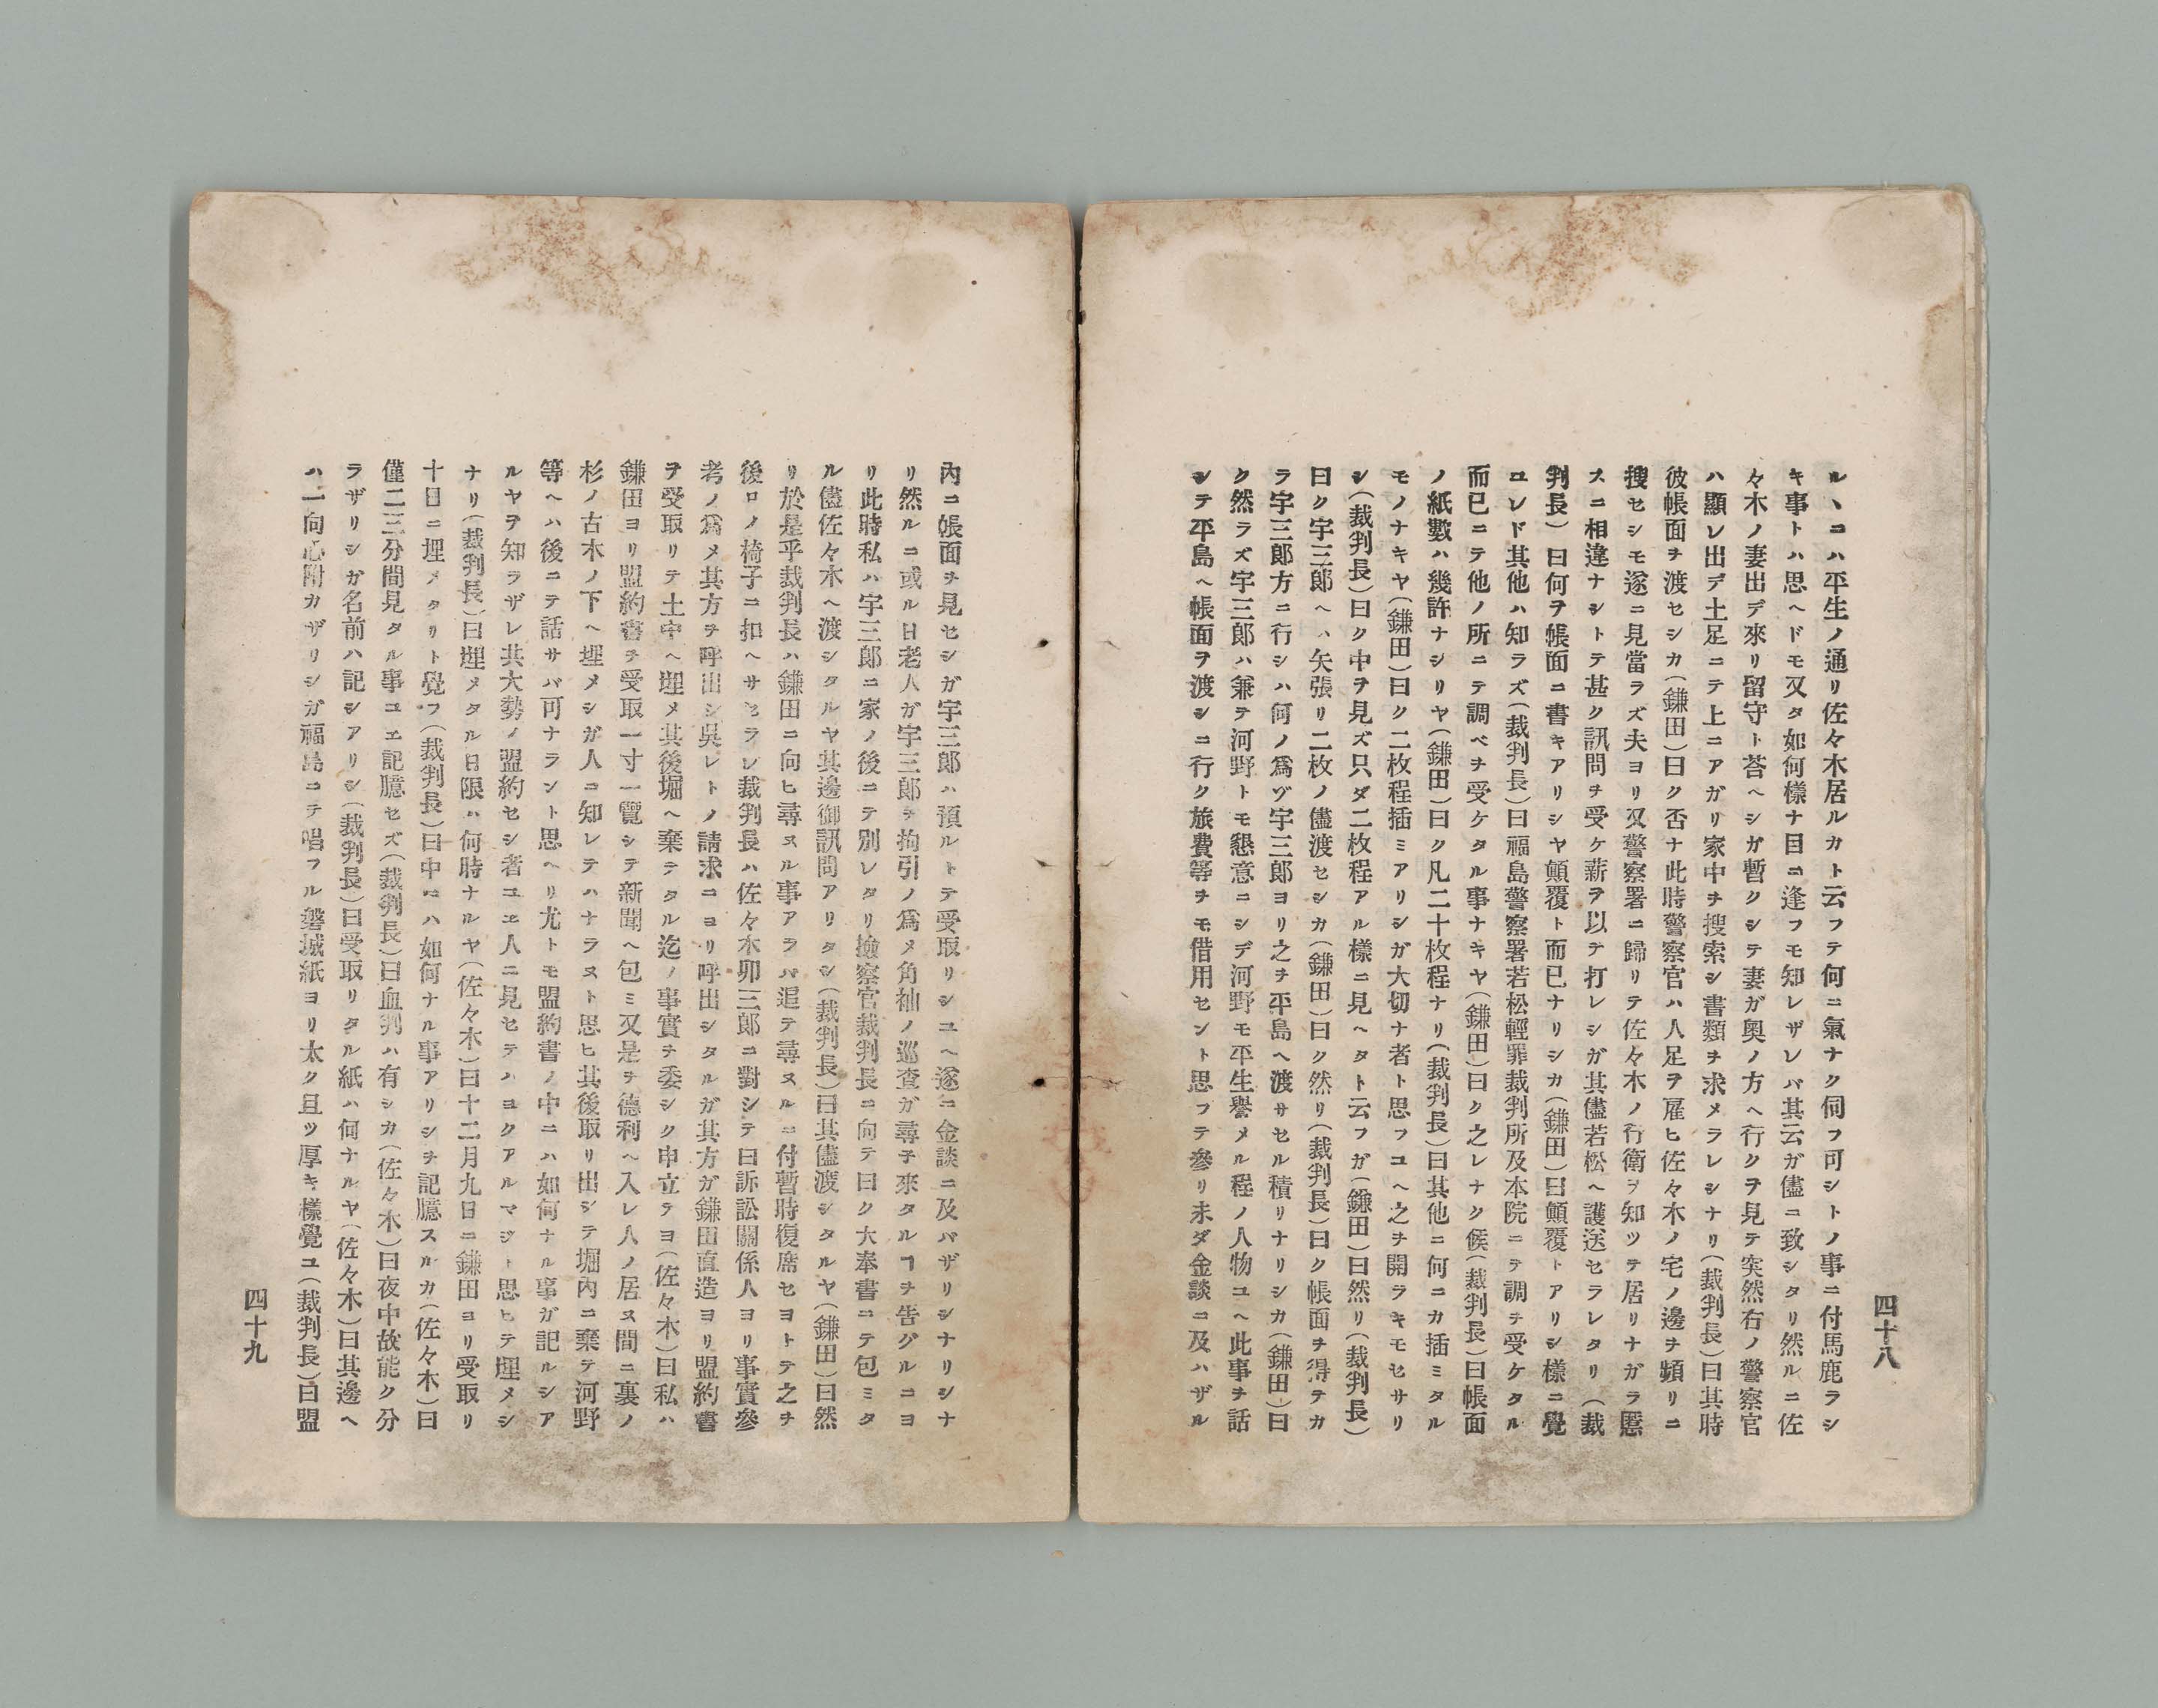 四十八
ルヽニハ平生ノ通リ佐々木居ルカト云フテ何ニ氣ナク伺フ可シトノ事ニ付馬鹿ラシ
キ事トハ思ヘドモ又タ如何樣ナ目ニ逢フモ知レザレバ其云ガ儘ニ致シタリ然ルニ佐
々木ノ妻出デ來リ留守ト荅ヘシガ暫クシテ妻ガ奥ノ方ヘ行クヲ見テ突然右ノ警察官
ハ顯レ出デ土足ニテ上ニアガリ家中ヲ搜索シ書類ヲ求メラレシナリ(裁判長)曰其時
彼帳面ヲ渡セシカ(鎌田)曰ク否ナ此時警察官ハ人足ヲ雇ヒ佐々木ノ宅ノ邊ヲ頻リニ
搜セシモ遂ニ見當ラズ夫ヨリ又警察署ニ歸リテ佐々木ノ行衛ヲ知ツテ居リナガラ匿
スニ相違ナシトテ甚ク訊問ヲ受ケ薪ヲ以テ打レシガ其儘若松ヘ護送セラレタリ(裁
判長)曰何ヲ帳面ニ書キアリシヤ顛覆ト而已ナリシカ(鎌田)曰顛覆トアリシ樣ニ覺
ユレド其他ハ知ラズ(裁判長)曰福島警察署若松輕罪裁判所及本院ニテ調ヲ受ケタル
而已ニテ他ノ所ニテ調ベヲ受ケタル事ナキヤ(鎌田)曰ク之レナク候(裁判長)曰帳面
ノ紙數ハ幾許ナシリヤ(鎌田)曰ク凡二十枚程ナリ(裁判長)曰其他ニ何ニカ插ミタル
モノナキヤ(鎌田)曰ク二枚程插ミアリシガ大切ナ者ト思フユヘ之ヲ開ラキモセサリ
シ(裁判長)曰ク中ヲ見ズ只ダ二枚程アル樣ニ見ヘタト云フガ(鎌田)曰然リ(裁判長)
曰ク宇三郎ヘハ矢張リ二枚ノ儘渡セシカ(鎌田)曰ク然リ(裁判長)曰ク帳面ヲ得テカ
ラ宇三郎方ニ行シハ何ノ爲ヅ宇三郎ヨリ之ヲ平島ヘ渡サセル積リナリシカ(鎌田)曰
ク然ラズ宇三郎ハ兼テ河野トモ懇意ニシデ河野モ平生譽メル程ノ人物ユヘ此事ヲ話
シテ平島ヘ帳面ヲ渡シニ行ク旅費等ヲモ借用セント思フテ參リ未ダ金談ニ及ハザル
內ニ帳面ヲ見セシガ宇三郎ハ預ルトテ受取リシユヘ遂ニ金談ニ及バザリシナリシナ
リ然ルニ或ル日老人ガ宇三郎ヲ拘引ノ爲メ角袖ノ巡査ガ尋子來タルヿヲ告グルニヨ
リ此時私ハ宇三郎ニ家ノ後ニテ別レタリ撿察官裁判長ニ向テ曰ク大奉書ニテ包ミタ
ル儘佐々木ヘ渡シタルヤ其邊御訊問アリタシ(裁判長)曰其儘渡シタルヤ(鎌田)曰然
リ於是乎裁判長ハ鎌田ニ向ヒ尋ヌル事アラバ追テ尋ヌルニ付暫時復席セヨトテ之ヲ
後ロノ椅子ニ扣ヘサセラレ裁判長ハ佐々木卯三郎ニ對シテ曰訴訟關係人ヨリ事實參
考ノ爲メ其方ヲ呼出シ吳レトノ請求ニヨリ呼出シタルガ其方ガ鎌田直造ヨリ盟約書
ヲ受取リテ土中ヘ埋メ其後堀ヘ棄テタル迄ノ事實ヲ委シク申立テヨ(佐々木)曰私ハ
鎌田ヨリ盟約書ヲ受取一寸一覽シテ新聞ヘ包ミ又是ヲ德利ヘ入レ人ノ居ヌ間ニ裏ノ
杉ノ古木ノ下ヘ埋メシガ人ニ知レテハナラヌト思ヒ其後取リ出シテ堀內ニ棄テ河野
等ヘハ後ニテ話サバ可ナラント思ヘリ尤トモ盟約書ノ中ニハ如何ナル事ガ記ルシア
ルヤヲ知ラザレ共大勢ノ盟約セシ者ユヱ人ニ見セテハヨクアルマジト思ヒテ埋メシ
ナリ(裁判長)曰埋メタル日限ハ何時ナルヤ(佐々木)曰十二月九日ニ鎌田ヨリ受取リ
十日ニ埋メタリト覺フ(裁判長)曰中ニハ如何ナル事アリシヲ記臆スルカ(佐々木)曰
僅二三分間見タル事ユエ記臆セズ(裁判長)曰血判ハ有シカ(佐々木)曰夜中故能ク分
ラザリシガ名前ハ記シアリシ(裁判長)曰受取リタル紙ハ何ナルヤ(佐々木)曰其邊ヘ
ハ一向心附カザリシガ福島ニテ唱フル磐城紙ヨリ太ク且ツ厚キ樣覺ユ(裁判長)曰盟
四十九